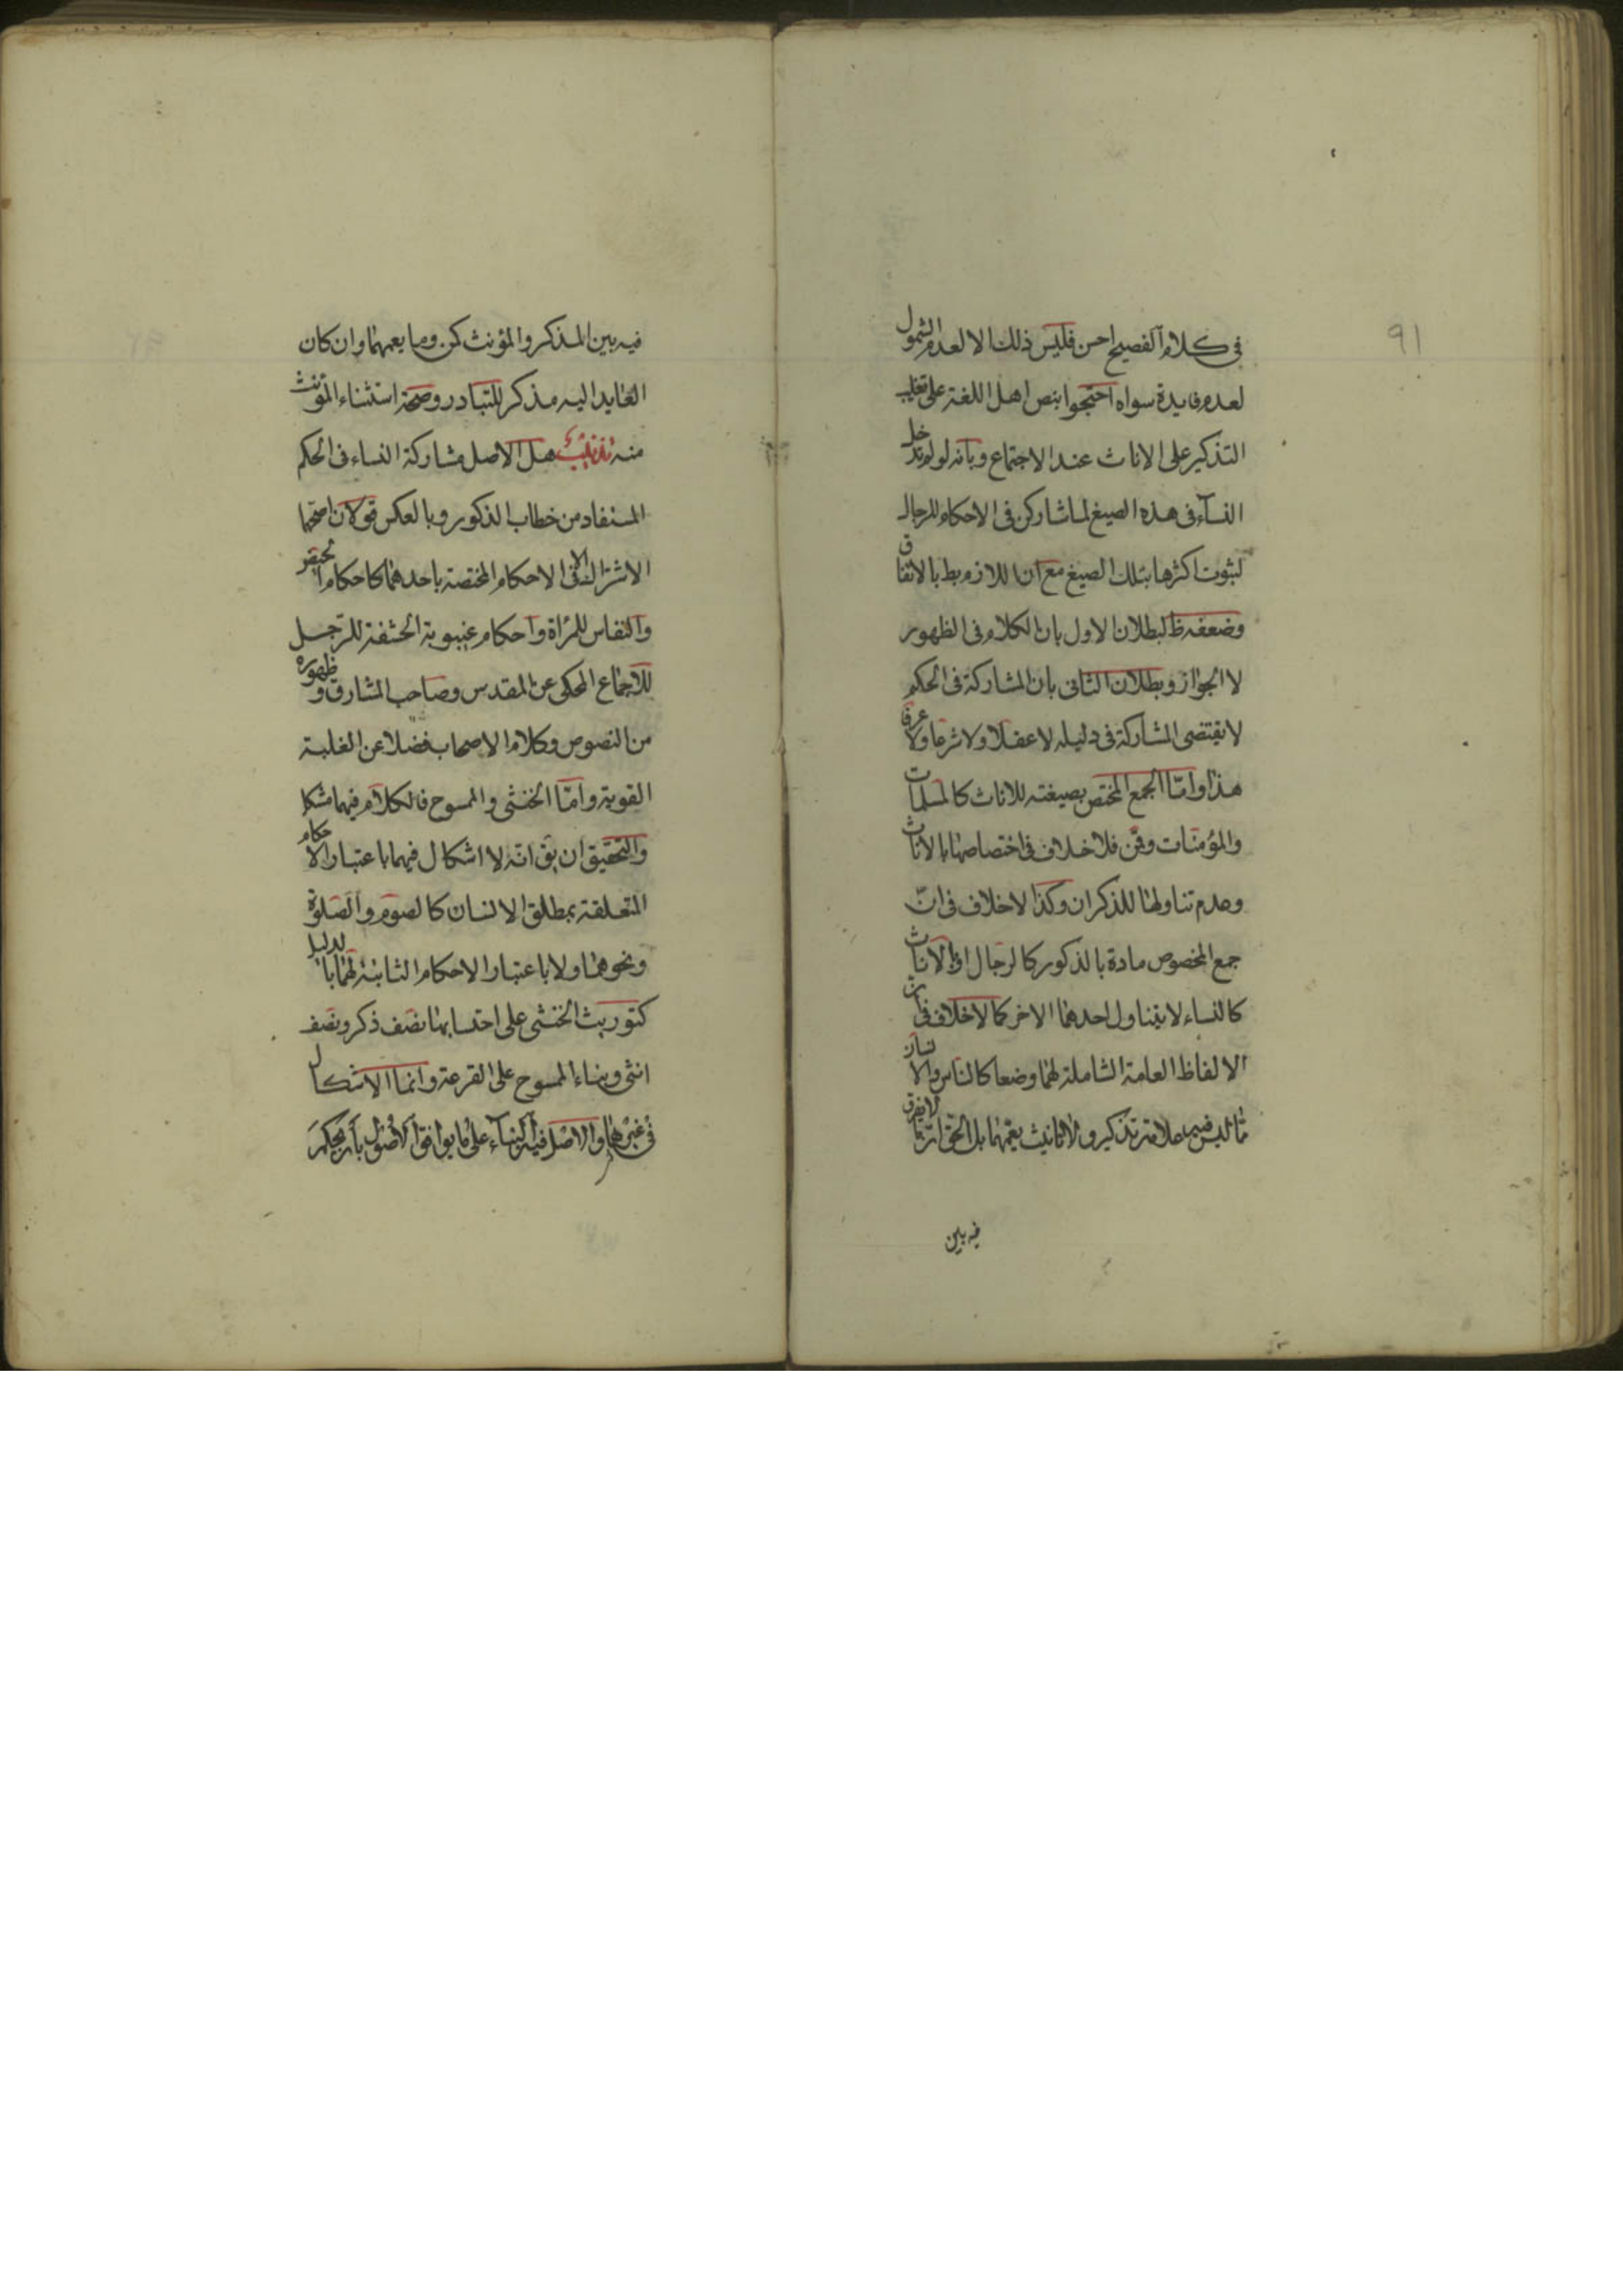 ٩١
في كلام الفصيح احسن فليس ذلك الا لعدم الشمول
لعدم فايدة سواه احتجوا بنص اهل اللغة على تغليب
التذكير على الاناث عند الاجتماع وبانه لو لم تدخل
النسآء في هذه الصيغ لما شاركن في الاحكام للرجال
لثبوت اكثرها بتلك الصيغ مع ان اللازم بط بالاتفاق
وضعفه ظ لبطلان الاول بان الكلام في الظهور
لا الجواز وبطلان الثاني بان المشاركة في الحكم
لا يقتضي المشاركة في دليله لا عقلا ولا شرعا ولا عرفا
هذا وامّا الجمع المختص بصيغته للاناث كالمسلمات
والمؤمنات وقمن فلا خلاف في اختصاصها بالاناث
وعدم تناولها للذكران وكذا لا خلاف في انّ
جمع المخصوص مادة بالذكور كالرجال او بالاناث
كالنساء لا يتناول احدهما الاخر كما لا خلاف في ان
الالفاظ العامة الشاملة لهما وضعا كالناس والانسان
مما ليس فيه علامة تذكير ولا تانيث يعمّهما بل الحق ان ما لا يفرق
فيه بين
فيه بين المذكر والمؤنث كمن وما يعمهما وان كان
العايد اليه مذكر للتبادر وصحة استثناء المؤنث
منه تذنيب هل الاصل مشاركة النساء في الحكم
المستفاد من خطاب الذكور وبالعكس قولان اصحهما
الاشتراك الا في الاحكام المختصة باحدهما كاحكام الحيض
والنفاس للمراة واحكام غيبوبة الحشفة للرجل
للاجماع المحكي عن المقدس وصاحب المشارق وظهوره
من النصوص وكلام الاصحاب فضلا عن الغلبة
القوية وامّا الخنثى والممسوح فالكلام فيهما مشكل
والتحقيق ان يق انه لا اشكال فيهما باعتبار الاحكام
المتعلقة بمطلق الانسان كالصوم والصلوة
ونحوهما ولا باعتبار الاحكام الثابتة لهما بالدليل
كتوريث الخنثى على احتسابها نصف ذكر ونصف
انثى وبناء الممسوح على القرعة وانما الاشكال
في غيرهما والاصل فيه البناء على ما يوافق الاصول بان يحكم